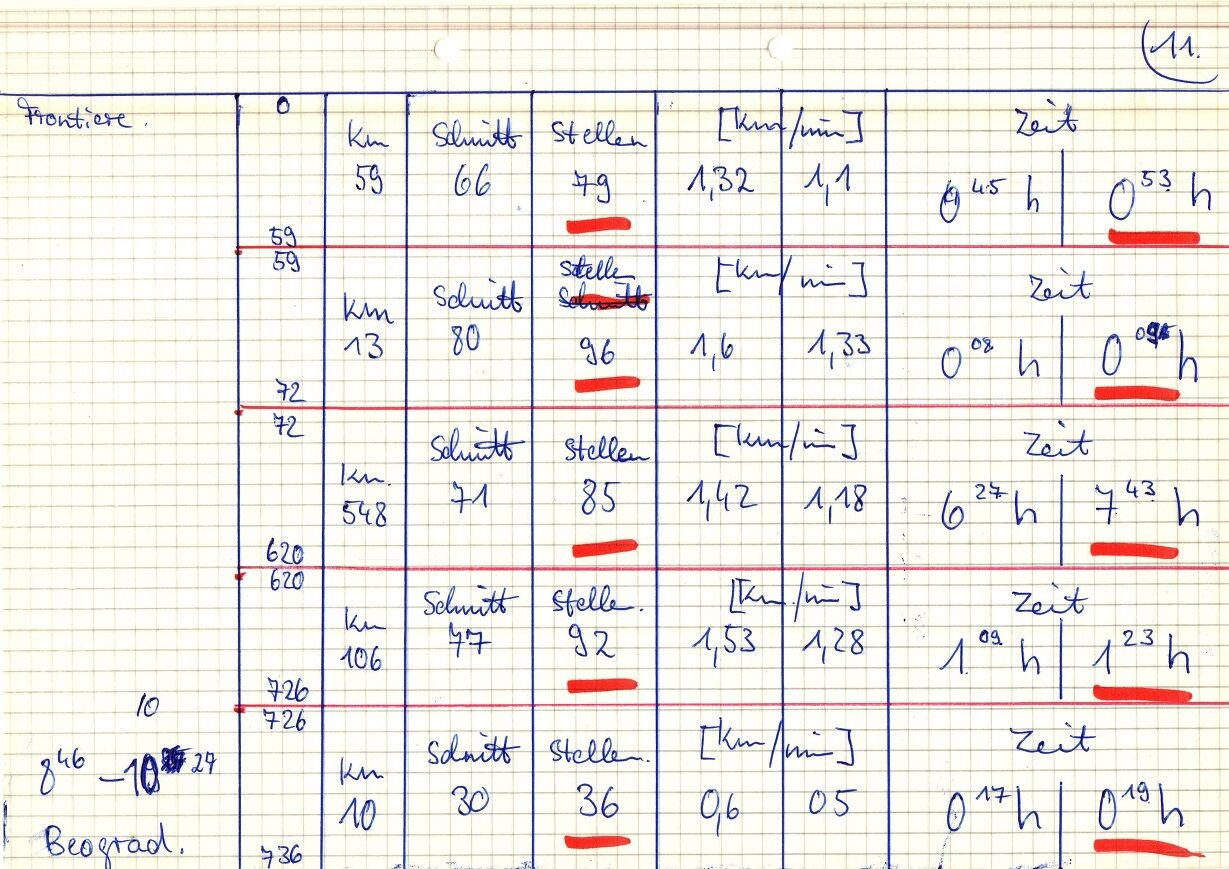 11.
Frontiere.
0
Km Schnitt Stellen [Km/min] Zeit
59 66 79 1,32 1,1 0 45 h 0 53 h
59
59
Km Schnitt Stellen [Km/min] Zeit
13 80 96 1,6 1,33 0 08 h
72
72
Km. Schnitt Stellen [Km/min] Zeit
548 71 85 1,42 1,18 6 27 h 7 43 h
620
620
Km Schnitt Stellen. [Km/min] Zeit
106 77 92 1,53 1,28 1 09 h 1 23 h
726
10
726
Km Schnitt Stellen. [Km/min] Zeit
8 46 – 10 27
10 30 36 0,6 05 0 17 h 0 19 h
Beograd.
736